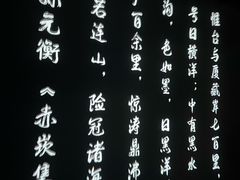 惟台与厦藏岸七百里，
号曰横洋；中有黑水
沟，色如墨，曰黑洋
百余里，惊涛鼎沸
若连山，险冠诸海
孙元衡《赤嵌集